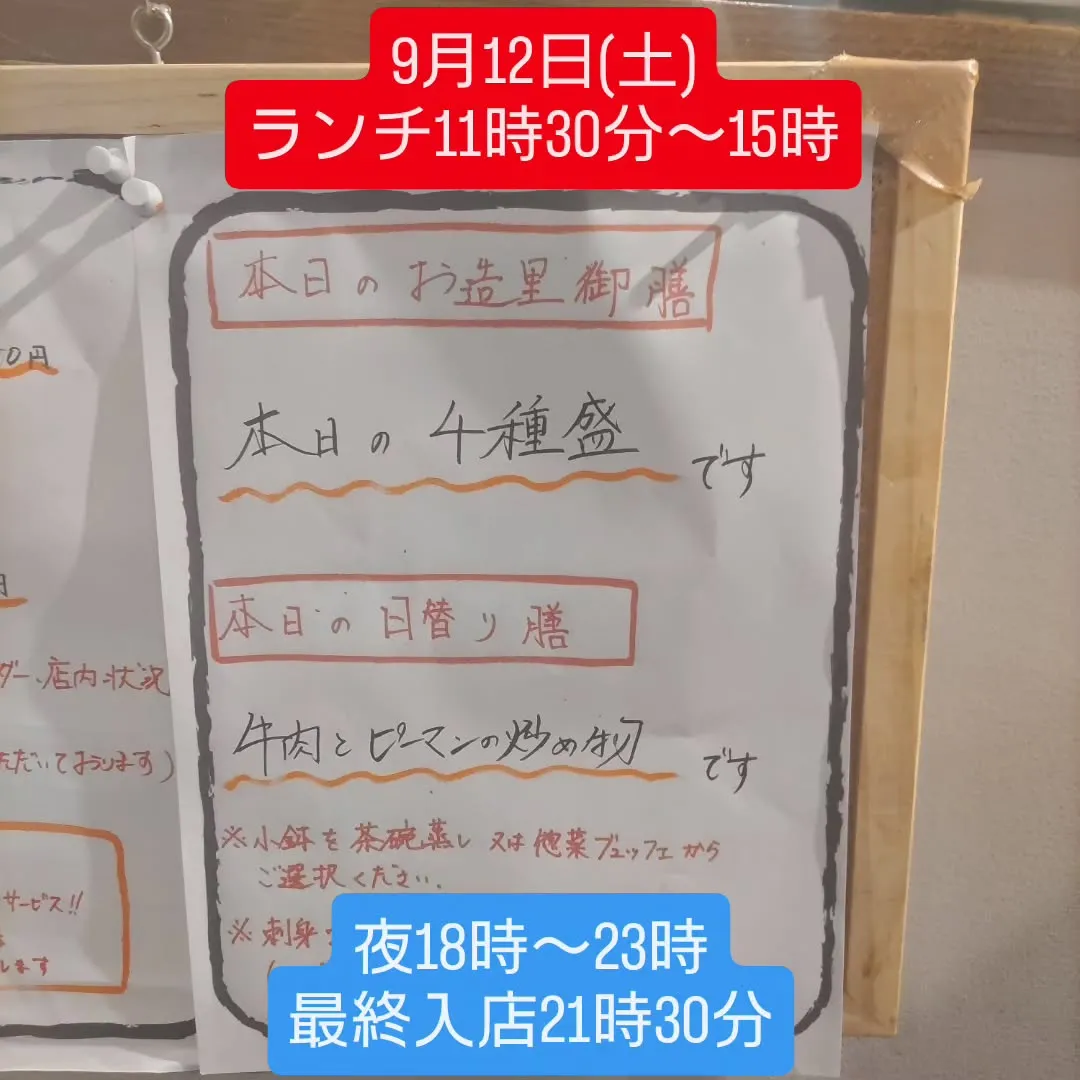 9月12日(土)
ランチ11時30分～15時
本日のお造里御膳
本日の4種盛です
本日の日替り膳
牛肉とピーマンの炒め物です
※小鉢を茶碗蒸し又は惣菜ブュッフェから
ご選択ください。
※刺身
夜18時～23時
最終入店21時30分
0円
円
ダー、店内状況
ただいております)
サービス!!
します